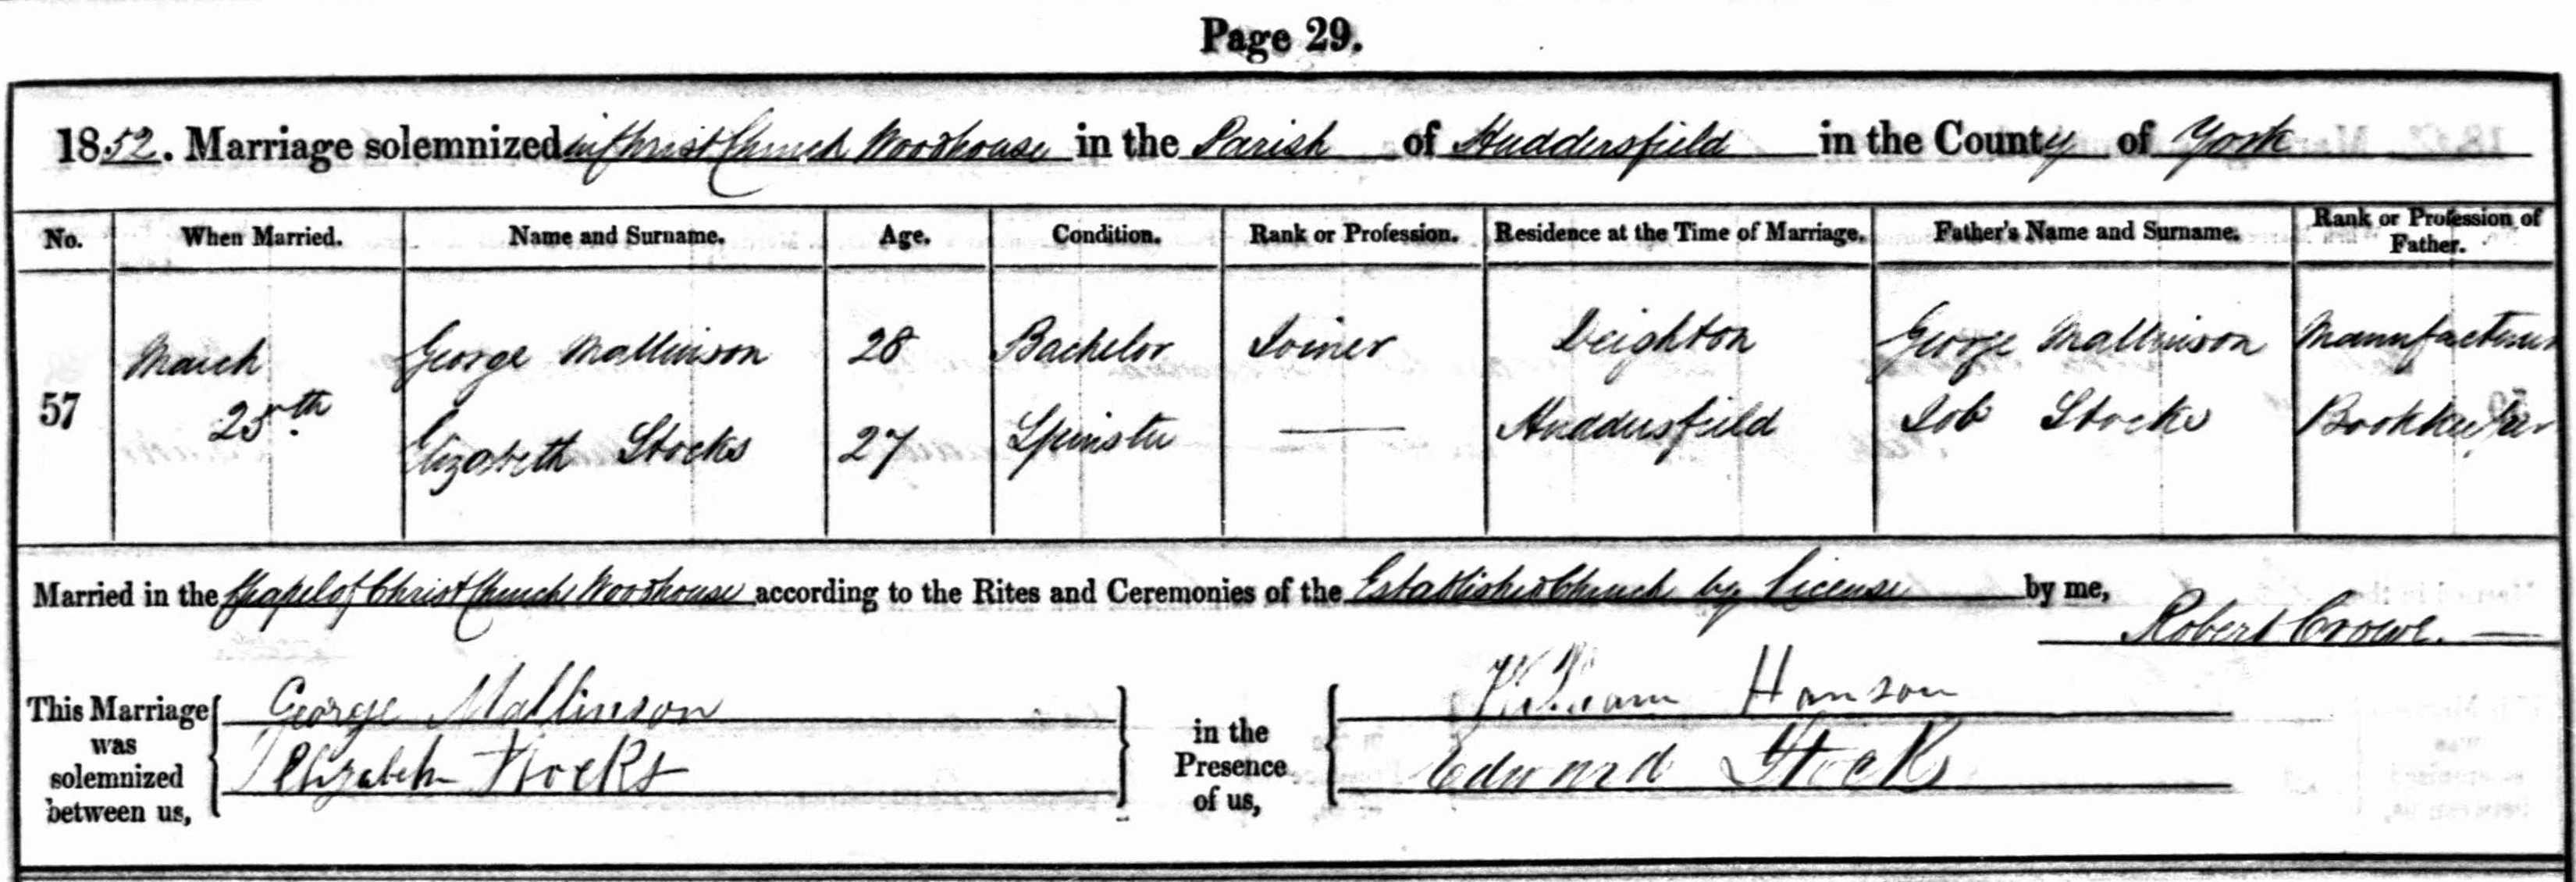 Page 29.
1852. Marriage solemnized in Christ Church Woodhouse in the Parish of Huddersfield in the County of York
No. When Married. Name and Surname. Age. Condition. Rank or Profession. Residence at the Time of Marriage. Father's Name and Surname. Rank or Profession of Father.
57 March 25th. George Mallinson 28 Bachelor Joiner Deighton George Mallinson Manufacturer
Elizabeth Stocks 27 Spinster — Huddersfield Job Stocks Bookkeeper
Married in the Chapel of Christ Church Woodhouse according to the Rites and Ceremonies of the Established Church by License by me,
Robert Crowe.
This Marriage was solemnized between us, George Mallinson in the Presence of us, William Hanson
Elizabeth Stocks Edward Stocks